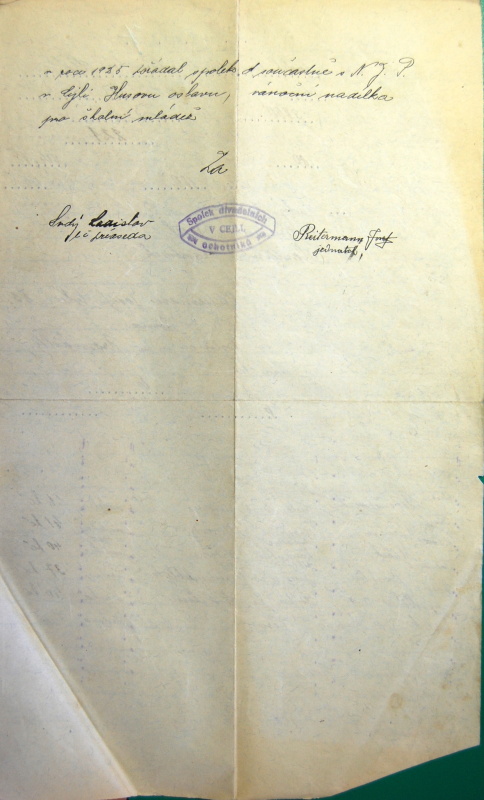 v roce 1935 pořádal spolek současně s N. J. P.
v Cejli Husovu oslavu, vánoční nadílka
pro školní mládež
Za
Ladislav
předseda
Spolek divadelních
V CEJLI,
ochotníků
Reitermann Josef
jednatel,